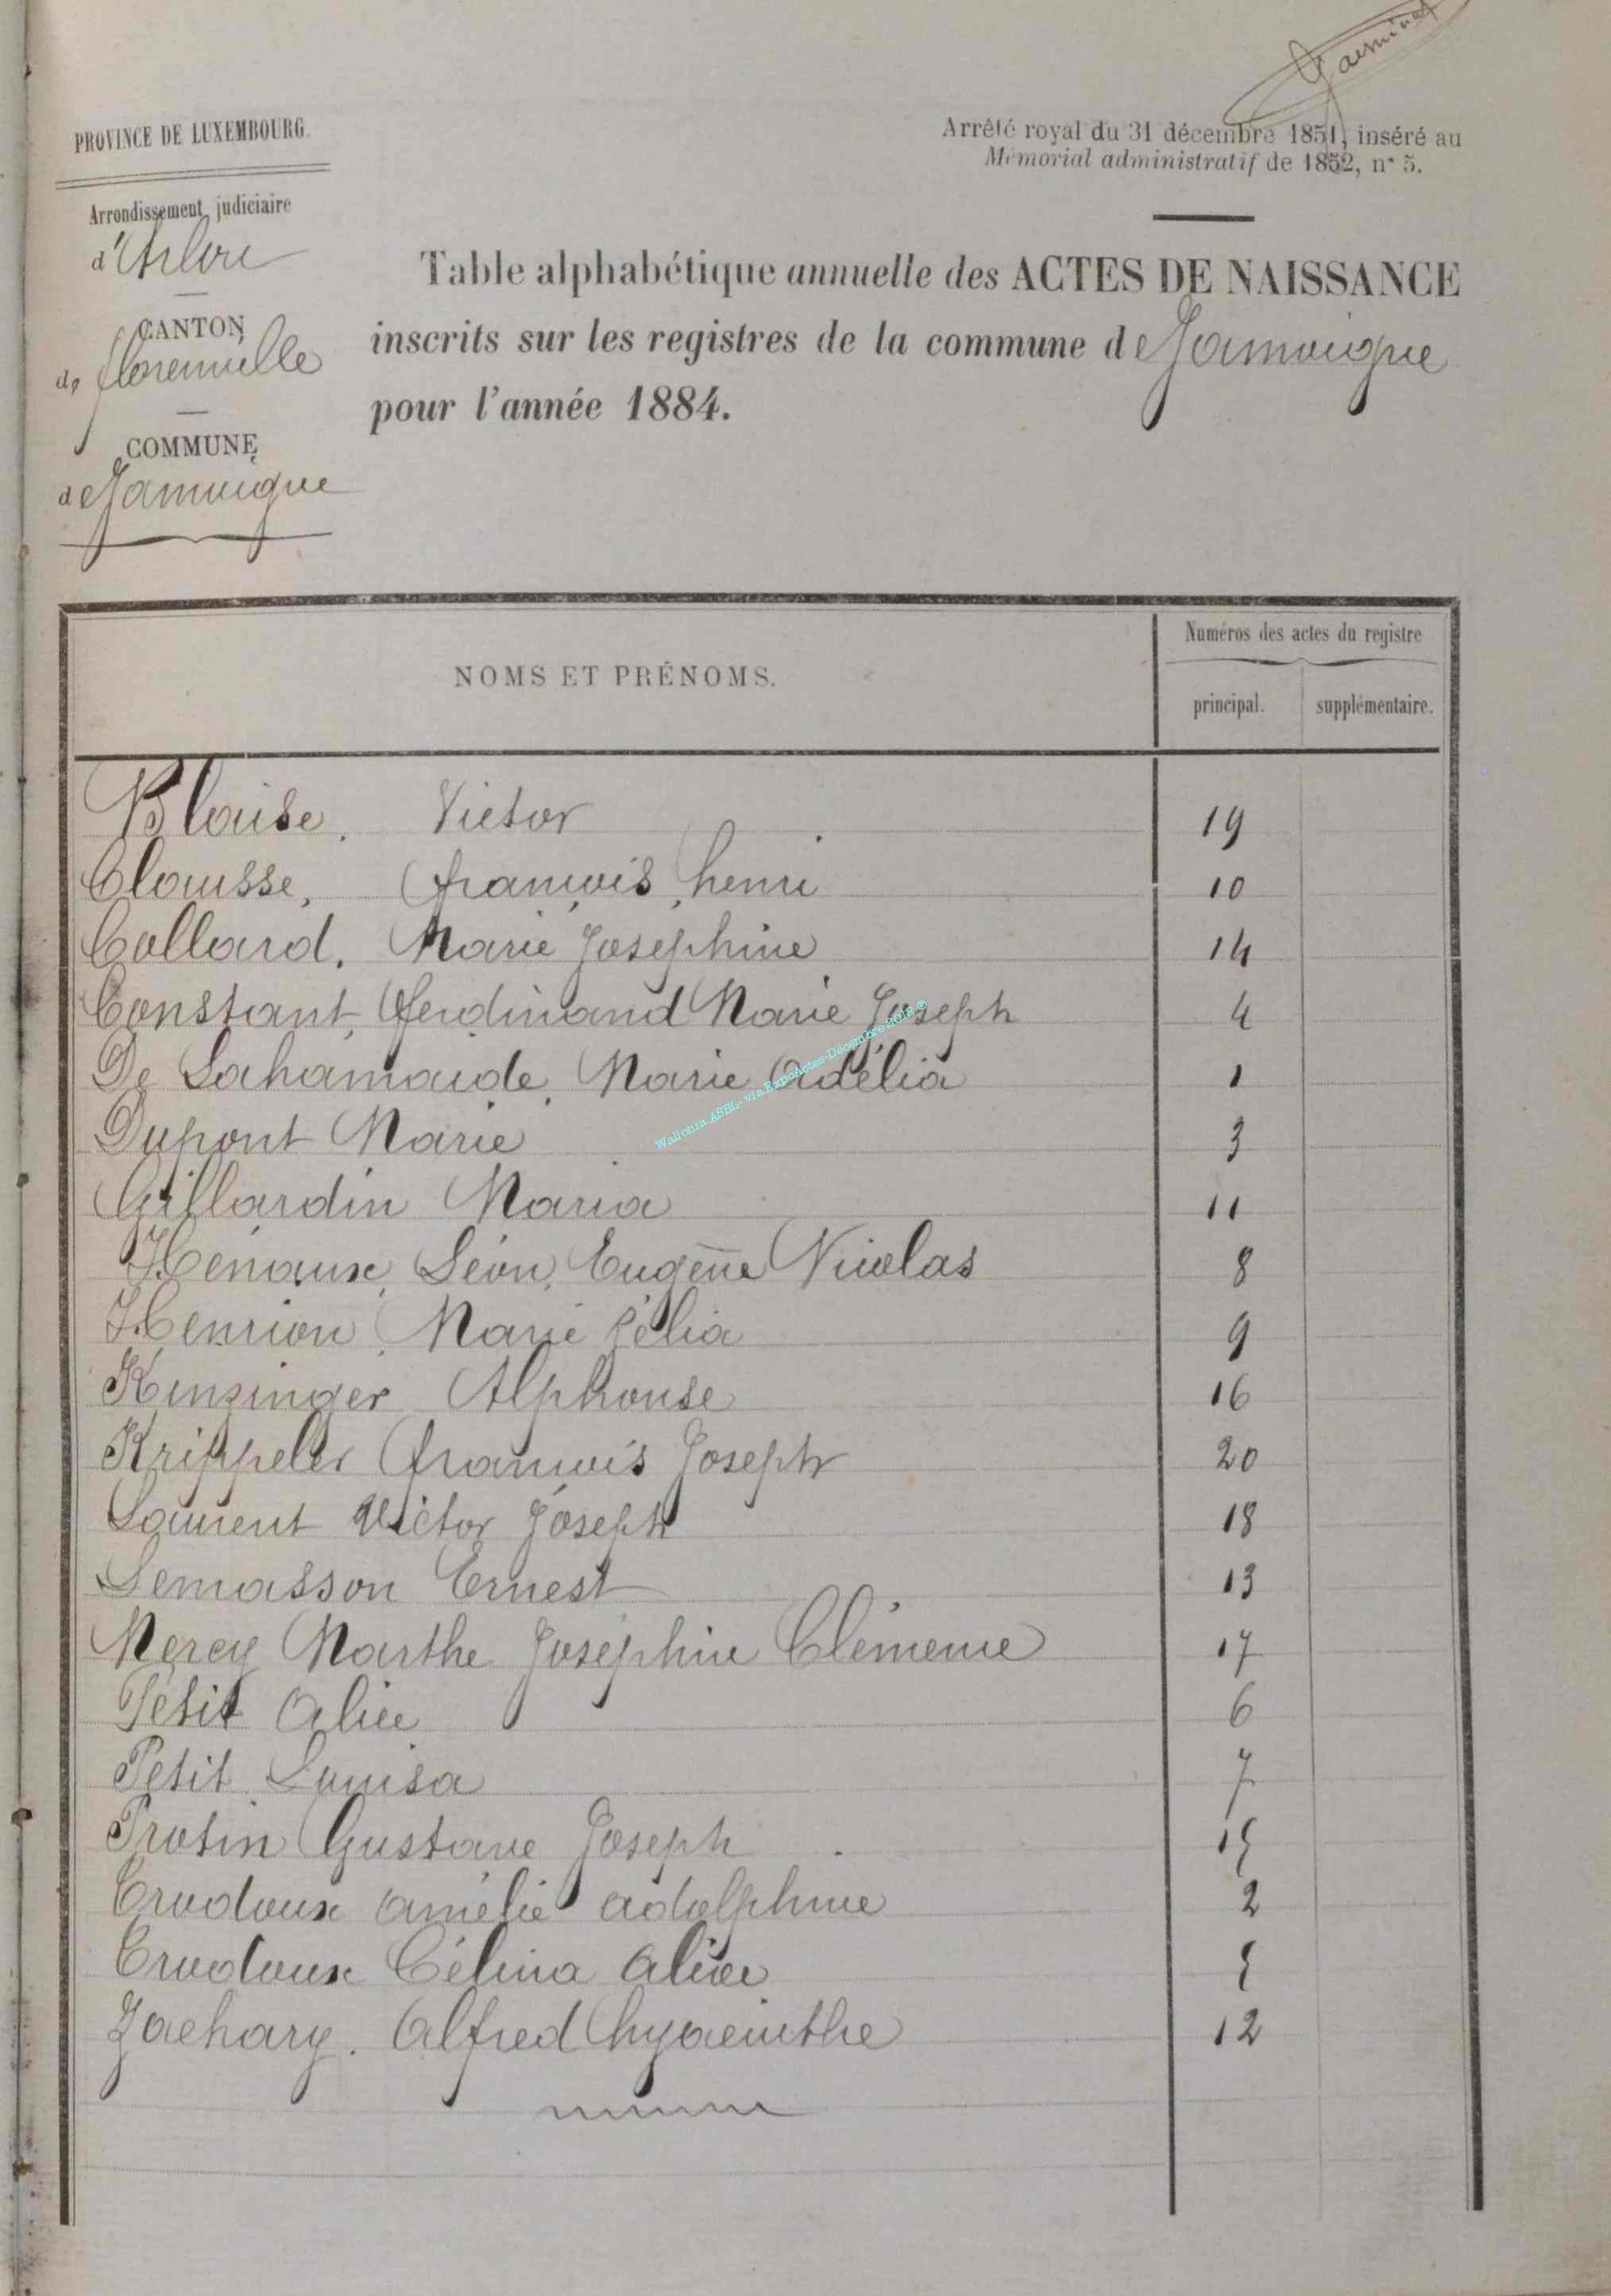 PROVINCE DE LUXEMBOURG.
Arrondissement judiciaire
d'Arlon
CANTON
de florenville
COMMUNE
de Jamoigne
Arrêté royal du 31 décembre 1851, inséré au
Mémorial administratif de 1852, n° 5.
Table alphabétique annuelle des ACTES DE NAISSANCE
inscrits sur les registres de la commune de Jamoigne
pour l'année 1884.
NOMS ET PRÉNOMS.
Numéros des actes du registre
principal. supplémentaire.
Blaise, Victor 19
Clausse, françois, henri 10
Collard, Marie Joséphine 14
Constant, ferdinand Marie Joseph 4
De Lahamaide, Marie Adélia 1
Dupont Marie 3
Gillardin Maria 11
Henaux, Léon, Eugène Nicolas 8
Henrion, Marie Célia 9
Kinsinger Alphonse 16
Krippeler françois Joseph 20
Laurent Victor Joseph 18
Lemasson Ernest 13
Mercy Marthe Joséphine Clémence 17
Petit Alice 6
Petit Louisa 7
Protin Gustave Joseph 15
Trodoux Amélie adolphine 2
Trodoux Célina Alice 5
Zachary. Alfred hyacinthe 12
Wallonia ASBL- via ExpoActes-Décembre 2012 ©